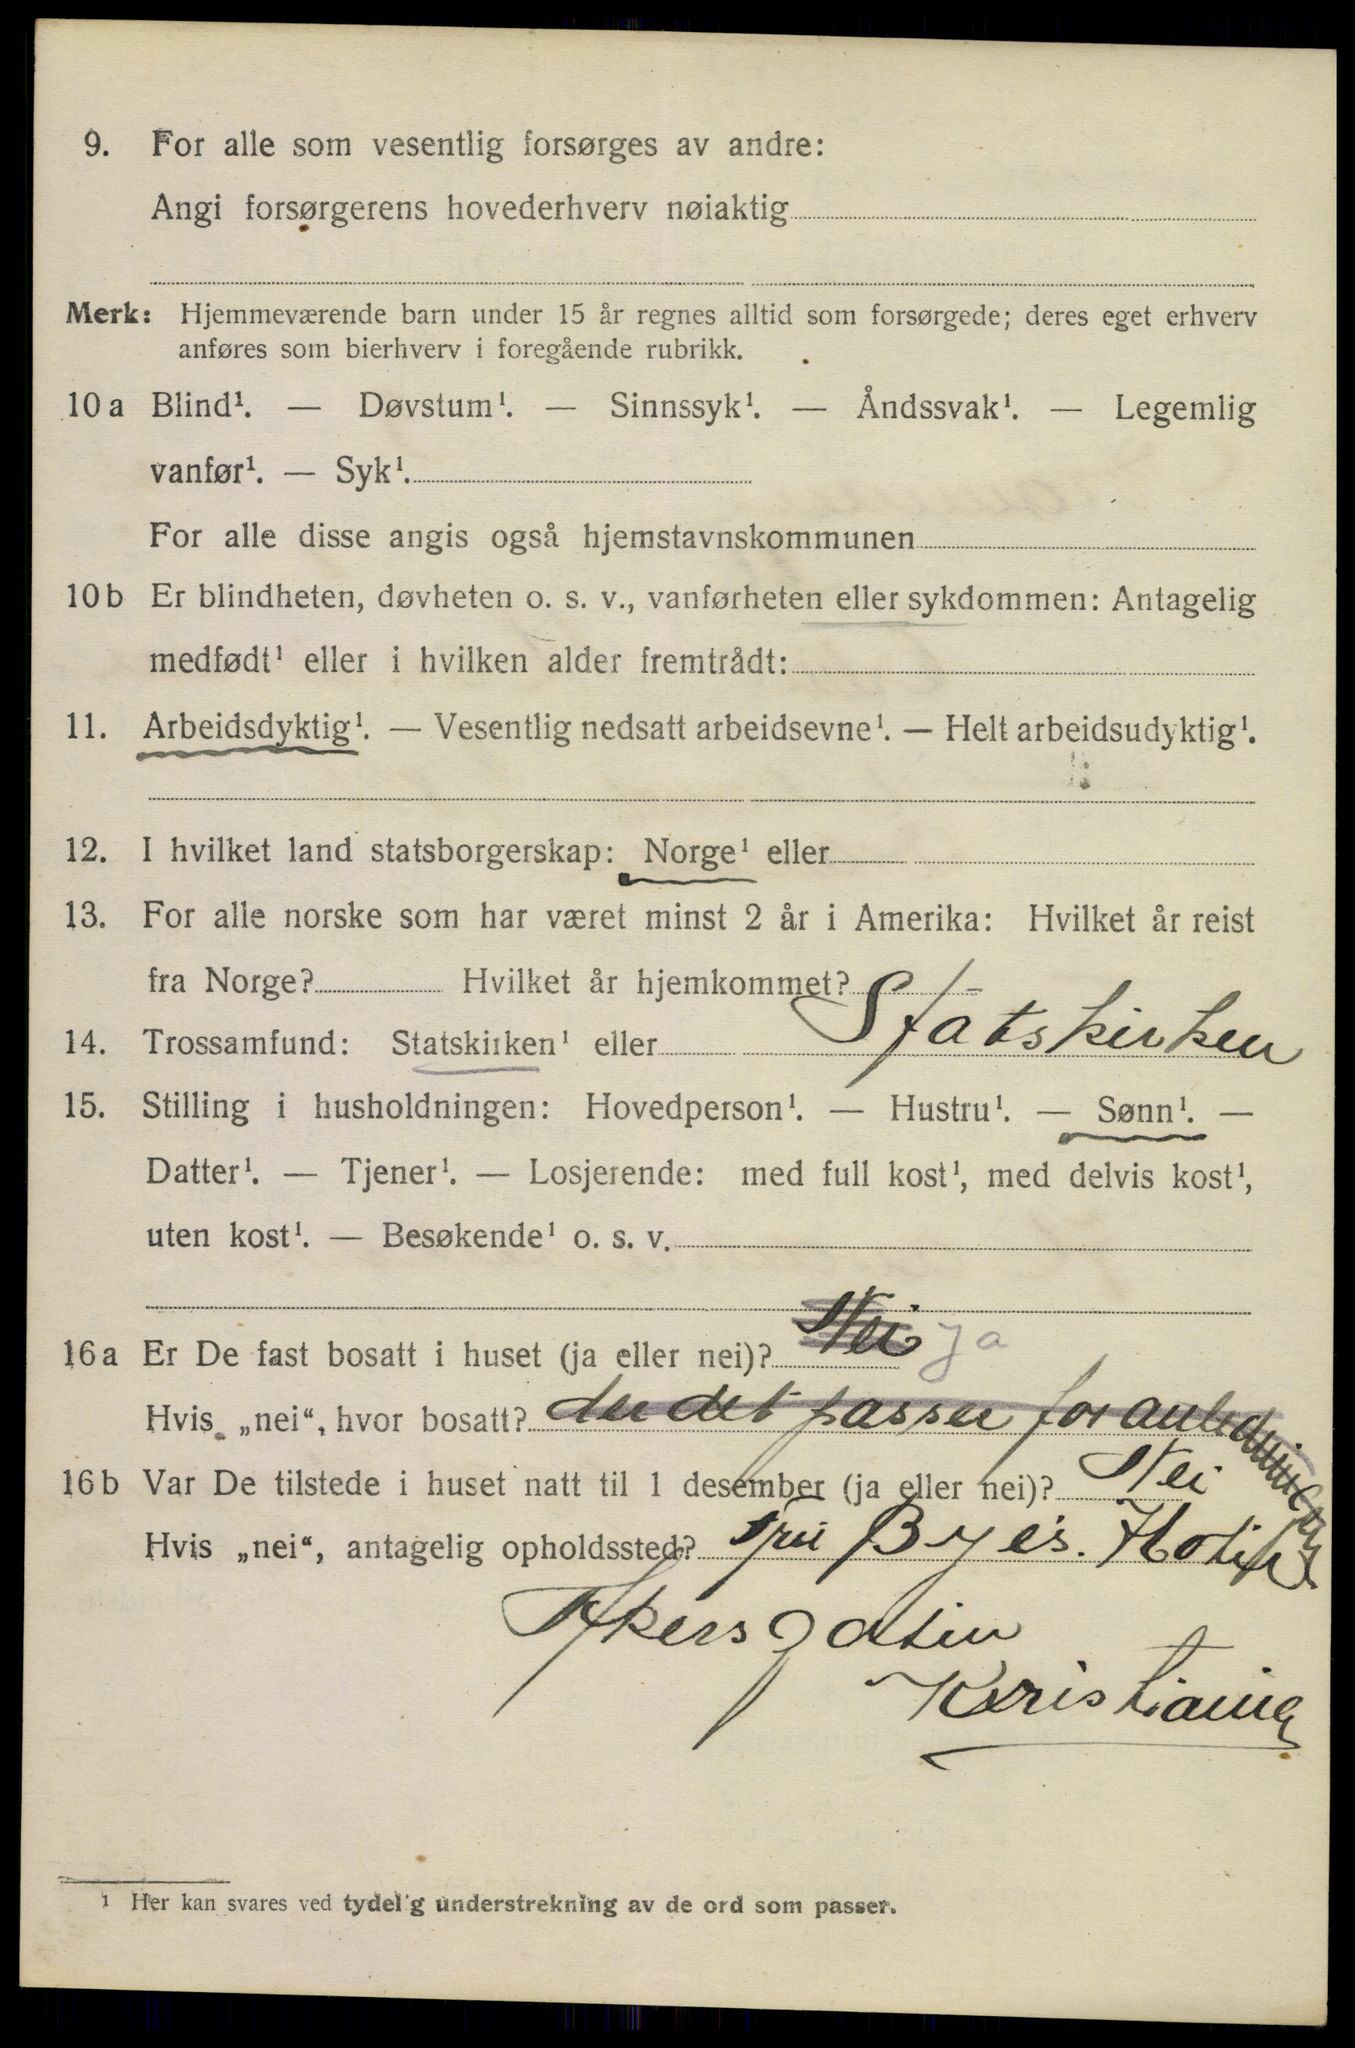 9. For alle som vesentlig forsørges av andre:
Angi forsørgerens hovederhverv nøiaktig
Merk: Hjemmeværende barn under 15 år regnes alltid som forsørgede; deres eget erhverv
anføres som bierhverv i foregående rubrikk.
10 a Blind¹. — Døvstum¹. — Sinnssyk¹. — Åndssvak¹. — Legemlig
vanfør¹. — Syk¹.
For alle disse angis også hjemstavnskommunen
10 b Er blindheten, døvheten o. s. v., vanførheten eller sykdommen: Antagelig
medfødt¹ eller i hvilken alder fremtrådt:
11. Arbeidsdyktig¹. — Vesentlig nedsatt arbeidsevne¹. — Helt arbeidsudyktig¹.
12. I hvilket land statsborgerskap: Norge¹ eller
13. For alle norske som har været minst 2 år i Amerika: Hvilket år reist
fra Norge? Hvilket år hjemkommet?
14. Trossamfund: Statskirken¹ eller Statskirken
15. Stilling i husholdningen: Hovedperson¹. — Hustru¹. — Sønn¹. —
Datter¹. — Tjener¹. — Losjerende: med full kost¹, med delvis kost¹,
uten kost¹. — Besøkende¹ o. s. v.
16 a Er De fast bosatt i huset (ja eller nei)? Nei Ja
Hvis „nei“, hvor bosatt? der det passer for
16 b Var De tilstede i huset natt til 1 desember (ja eller nei)? Nei
Hvis „nei“, antagelig opholdssted? Byes. Hotel
Akersgaten
Kristiania
¹ Her kan svares ved tydelig understrekning av de ord som passer.